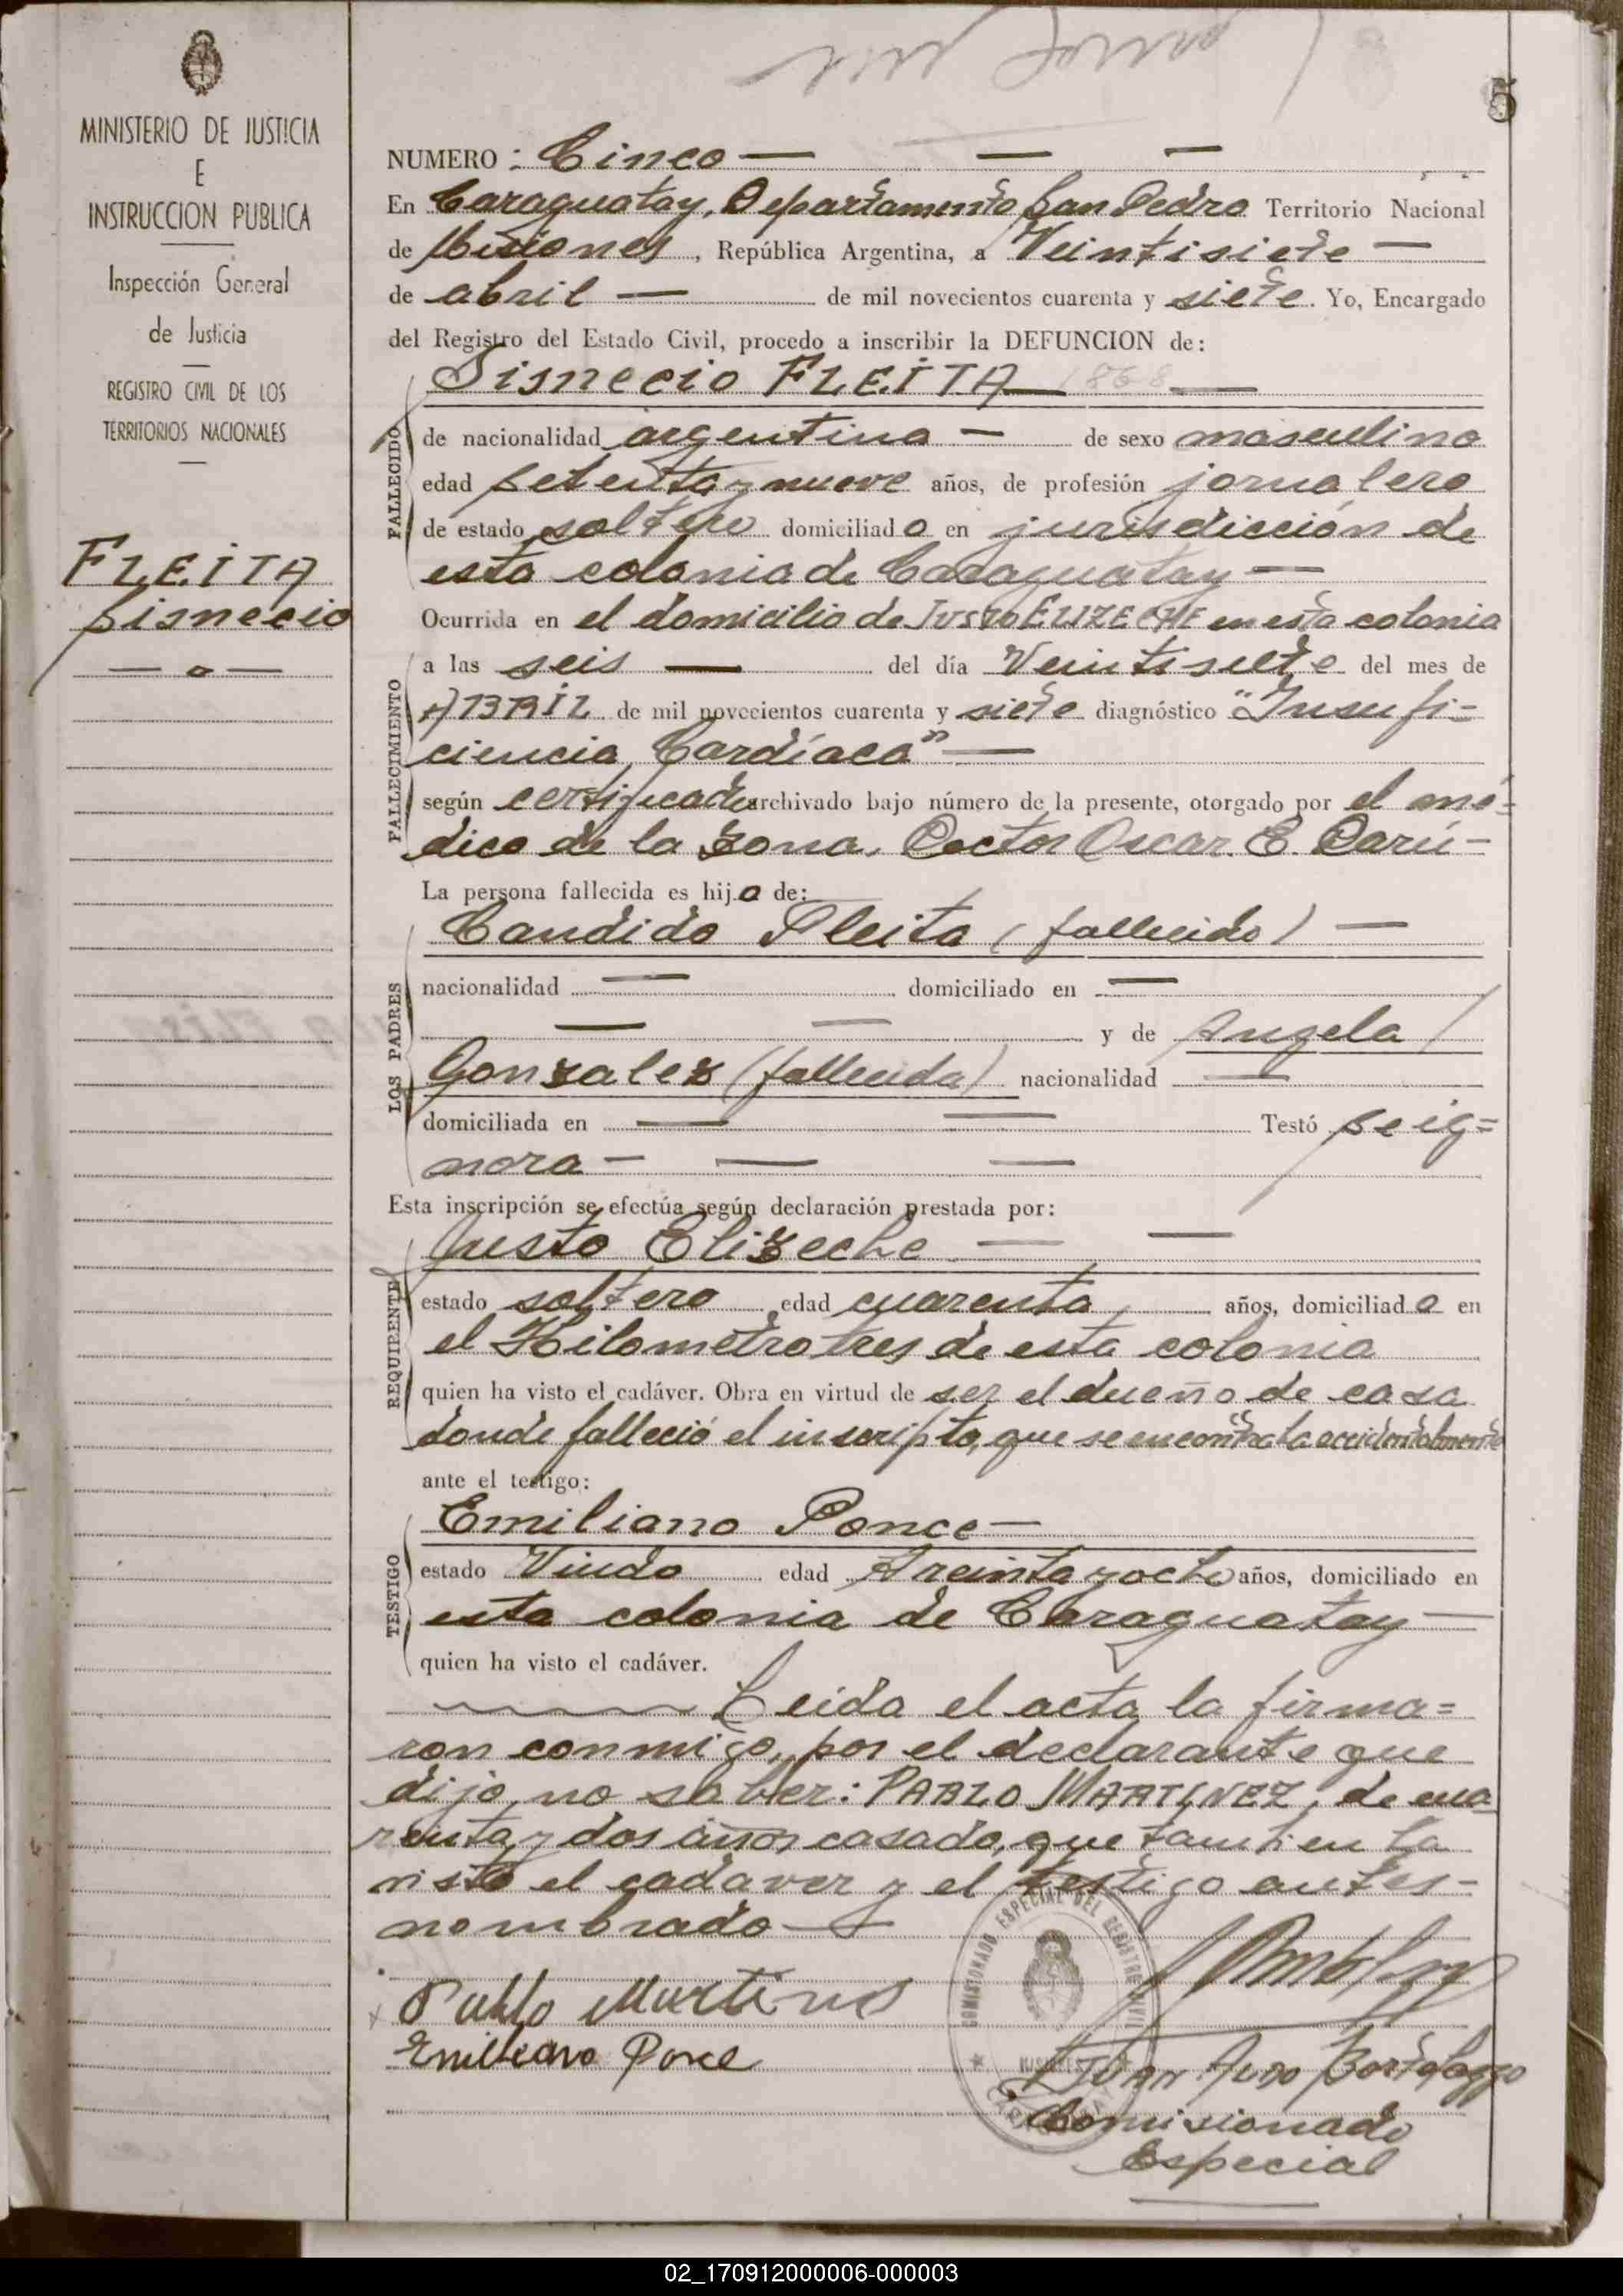 5
MINISTERIO DE JUSTICIA
E
INSTRUCCION PUBLICA
Inspección General
de Justicia
REGISTRO CIVIL DE LOS
TERRITORIOS NACIONALES
FLEITA
Sisnecio
NUMERO: Cinco
En Caraguatay, Departamento San Pedro Territorio Nacional
de Misiones, República Argentina, a Veintisiete
de abril de mil novecientos cuarenta y siete. Yo, Encargado
del Registro del Estado Civil, procedo a inscribir la DEFUNCION de:
Sisnecio FLEITA 1868
FALLECIDO
de nacionalidad argentina de sexo masculino
edad setenta y nueve años, de profesión jornalero
de estado soltero domiciliado en jurisdicción de
esta colonia de Caraguatay
Ocurrida en el domicilio de JUSTO ELIZECHE en esta colonia
FALLECIMIENTO
a las seis del día Veintisiete del mes de
ABRIL de mil novecientos cuarenta y siete diagnóstico "Insufi-
ciencia Cardíaca"
según certificado archivado bajo número de la presente, otorgado por el mé-
dico de la zona, Doctor Oscar E. Darú-
La persona fallecida es hijo de:
LOS PADRES
Candido Fleita (fallecido)
nacionalidad domiciliado en
y de Angela
Gonzalez (fallecida) nacionalidad
domiciliada en Testó se ig=
nora
Esta inscripción se efectúa según declaración prestada por:
REQUIRENTE
Justo Elizeche
estado soltero edad cuarenta años, domiciliado en
el Kilometro tres de esta colonia
quien ha visto el cadáver. Obra en virtud de ser el dueño de casa
donde falleció el inscripto, que se encontraba accidentalmente
ante el testigo:
TESTIGO
Emiliano Ponce
estado Viudo edad treinta y ocho años, domiciliado en
esta colonia de Caraguatay
quien ha visto el cadáver.
Leida el acta la firma=
ron conmigo, por el declarante que
dijo no saber: PABLO MARTINEZ, de cua
renta y dos años, casado, que tambien ha
visto el cadaver y el testigo antes-
nombrado
Pablo Martines
Emiliano Ponce
COMISIONADO ESPECIAL DEL REGISTRO CIVIL
Juan Bortolozzo
Comisionado
Especial
02_170912000006-000003